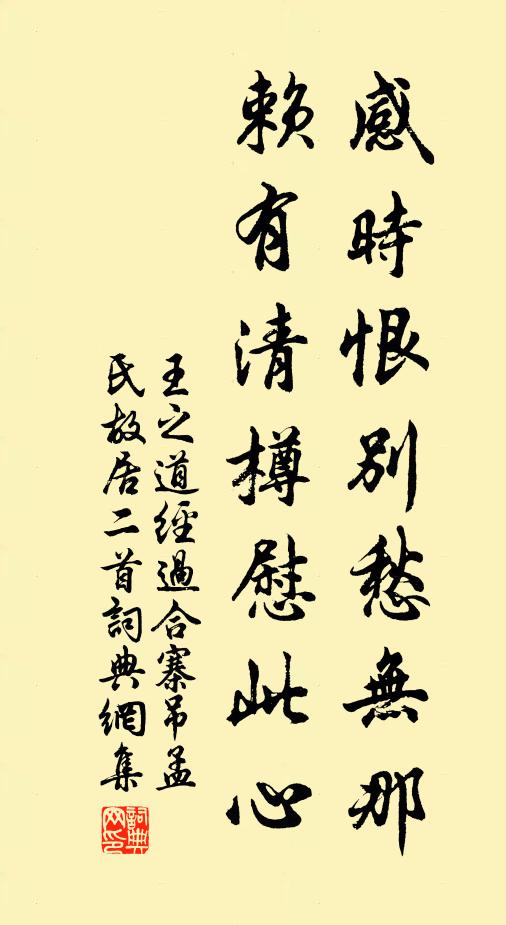 感時恨別愁無那
賴有清樽慰此心
王之道經過合寨吊孟
民故居二首詞典網集
詞典網印